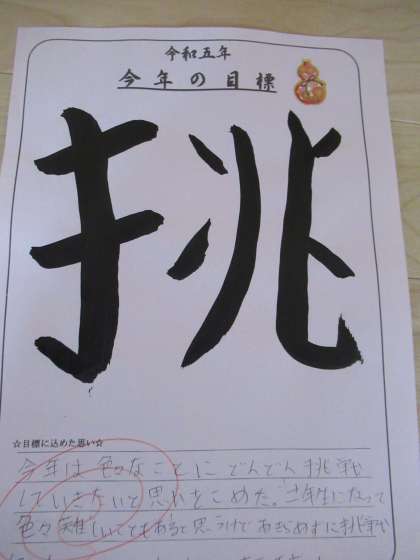 令和五年
今年の目標
挑
☆目標に込めた思い☆
今年は色々なことにどんどん挑戦
していきたいと思いをこめた。
色々難しいこともあると思うけどあきらめずに挑戦